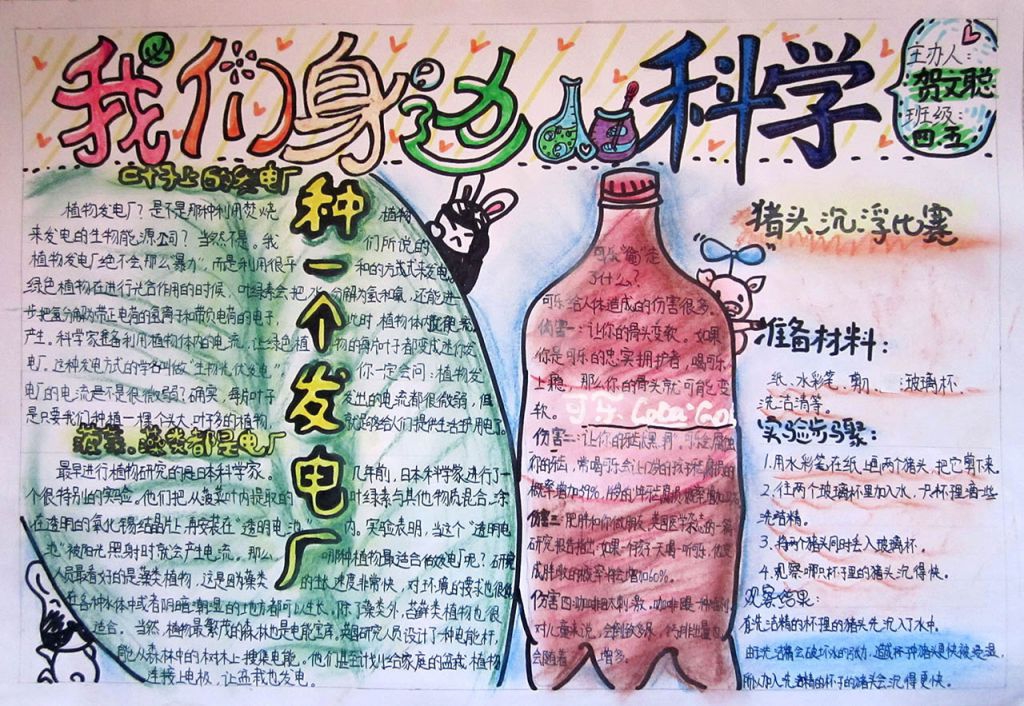 我们身边科学
主办人：
贺文聪
班级：
四、五
叶子上的发电厂
种一个发电厂
植物发电厂？是不是那种利用焚烧植物
来发电的生物能源公司？当然不是。我们所说的
植物发电厂绝不会那么暴力，而是利用很平和的方式来发电
绿色植物在进行光合作用的时候，叶绿素会把水分解为氢和氧，还能进一
步把氢分解为带正电荷的氢离子和带负电荷的电子，此时植物体内就能电流
产生。科学家准备利用植物体内的电流，让绿色植物的每片叶子都变成迷你发
电厂。这种发电方式的学名叫做“生物光伏发电”。你一定会问：植物发
电厂的电流是不是很微弱？确实，每片叶子发出的电流都很微弱，但
是只要我们种植一棵个头大、叶多的植物，就足够给人们提供生活用电了。
菠菜、藻类都是电厂
最早进行植物研究的是日本科学家。几年前，日本科学家进行了一
个很特别的实验。他们把从菠菜叶内提取的叶绿素与其他物质混合，涂
在透明的氧化锡结晶片上，再安装在“透明电池”内。实验表明，当这个“透明电
池”被阳光照射时就会产生电流。那么哪种植物最适合做发电厂呢？研究
人员最看好的是藻类植物，这是因为藻类的生长速度非常快，对环境的要求也很低
在各种水体中或者阴暗潮湿的地方都可以生长。除了藻类外，苔藓类植物也很
适合。当然，植物最繁茂的森林也是电能宝库，英国研究人员设计了一种电能杆，
能从森林中的树木上搜集电能。他们甚至计划给家庭的盆栽植物
连接上电极，让盆栽也发电。
可乐
什么？
可乐给人体造成的伤害很多。
伤害一：让你的骨头变软。如果
你是可乐的忠实拥护者，喝可乐
上瘾，那么你的骨头就可能变
软。
可乐 CocaCo
伤害二：让你
你的 常喝可乐会让
概率增加
伤害三：肥胖和你做朋友。美国医学杂志的一篇
研究报告指出：如果一个孩子一天喝一听可乐，他变
成胖墩的概率将会增加60%。
伤害四：咖啡因太刺激。咖啡因是一种
对儿童来说，会
会随着 增多。
猪头沉浮比赛
准备材料：
纸、水彩笔、剪、玻璃杯、
洗洁清等。
实验步骤：
1.用水彩笔在纸上画两个猪头，把它剪下来。
2.往两个玻璃杯里加入水，一只杯里滴一些
洗洁精。
3.将两个猪头同时丢入玻璃杯。
4.观察哪只杯子里的猪头沉得快。
观察结果：
有洗洁精的杯子里的猪头先沉入了水中。
由于洗洁精会破坏水的张力，
所以加入洗洁精的杯子的猪头会沉得更快。